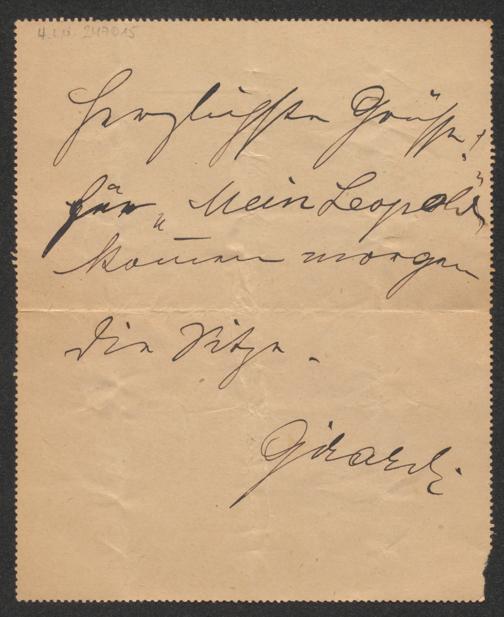 H.I.N. 247015
Herzlichste Grüsse!
für „Mein Leopold"
kom̄en morgen
die Sitze.
Girardi